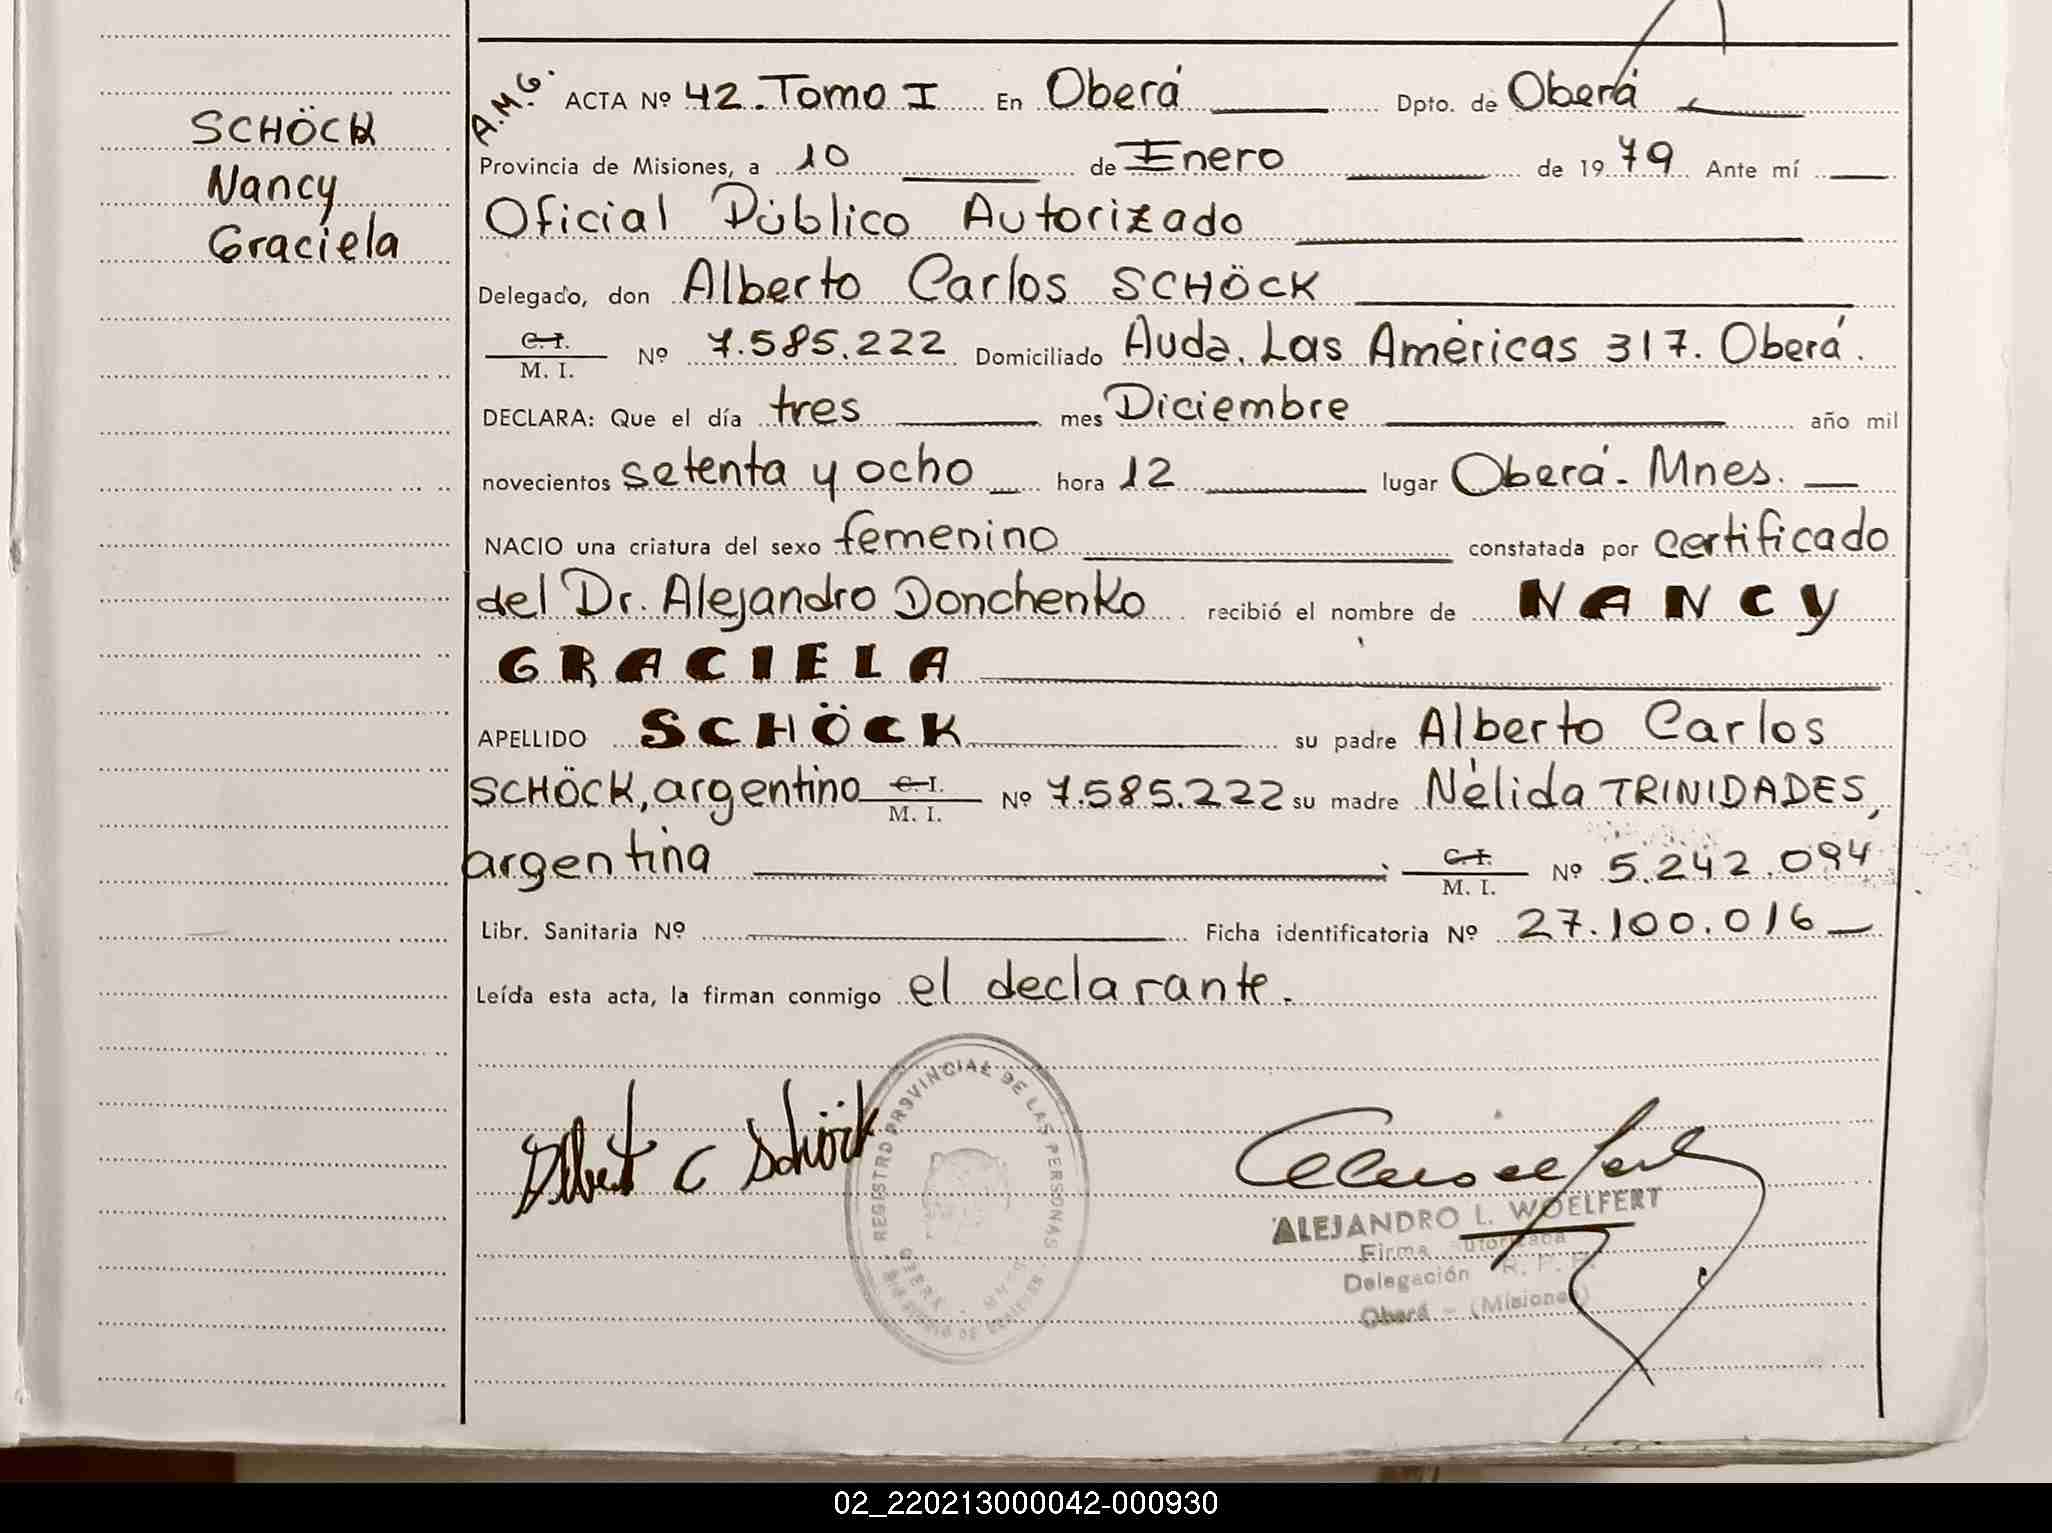 SCHÖCK
Nancy
Graciela
A.M.G.
ACTA Nº 42. Tomo I En Oberá Dpto. de Oberá
Provincia de Misiones, a 10 de Enero de 1979 Ante mí
Oficial Público Autorizado
Delegado, don Alberto Carlos SCHÖCK
C.I.
M. I. Nº 7.585.222 Domiciliado Avda. Las Américas 317. Oberá.
DECLARA: Que el día tres mes Diciembre año mil
novecientos setenta y ocho hora 12 lugar Oberá - Mnes.
NACIO una criatura del sexo femenino constatada por certificado
del Dr. Alejandro Donchenko recibió el nombre de NANCY
GRACIELA
APELLIDO SCHÖCK su padre Alberto Carlos
SCHÖCK, argentino C.I. M. I. Nº 7.585.222 su madre Nélida TRINIDADES,
argentina C.I. M. I. Nº 5.242.094
Libr. Sanitaria Nº Ficha identificatoria Nº 27.100.016
Leída esta acta, la firman conmigo el declarante.
Alberto C Schöck
REGISTRO PROVINCIAL DE LAS PERSONAS
OBERÁ
ALEJANDRO L. WOELFERT
Firma Autorizada
Delegación R. P. P.
Oberá - (Misiones)
02_220213000042-000930